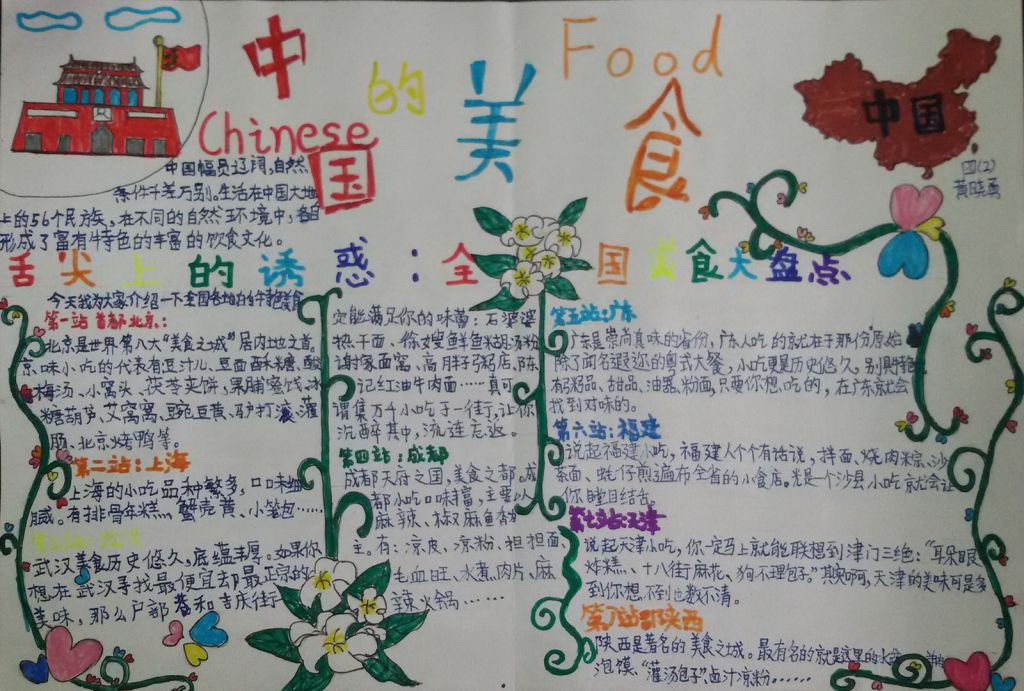 中国的美食
Chinese
Food
中国
四(2)
黄晓燕
中国幅员辽阔,自然
条件千差万别。生活在中国大地
上的56个民族,在不同的自然环境中,各自
形成了富有特色的丰富的饮食文化。
舌尖上的诱惑:全国美食大盘点
今天我为大家介绍一下全国各地的特色美食
第一站 首都北京:
北京是世界第八大“美食之城”居内地之首。
京味小吃的代表有豆汁儿、豆面酥糖、酸
梅汤、小窝头、茯苓夹饼、果脯蜜饯、冰
糖葫芦、艾窝窝、豌豆黄、驴打滚、灌
肠、北京烤鸭等。
第二站:上海
上海的小吃品种繁多,口味细
腻。有排骨年糕、蟹壳黄、小笼包……
第三站:武汉
武汉美食历史悠久,底蕴丰厚。如果你
想在武汉寻找最便宜却最正宗的
美味,那么户部巷和吉庆街
定能满足你的味蕾:石婆婆
热干面、徐嫂鲜鱼糊汤粉
谢家面窝、高胖子粥店、陈
记红油牛肉面……真可
谓集万千小吃于一街,让你
沉醉其中,流连忘返。
第四站:成都
成都天府之国,美食之都。成
都小吃口味丰富,主要以
麻辣、椒麻鱼香
主。有:凉皮、凉粉、担担面、
毛血旺、水煮肉片、麻
辣火锅……
第五站:广东
广东是崇尚真味的省份,广东人吃的就在于那份原始
除了闻名遐迩的粤式大餐,小吃更是历史悠久,别具
有粥品、甜品、油器、粉面,只要你想吃的,在广东就会
找到对味的。
第六站:福建
说起福建小吃,福建人个个有话说,拌面、烧肉粽、沙
茶面、蚝仔煎遍布全省的小食店。光是一个沙县小吃就会让
你瞠目结舌。
第七站:天津
说起天津小吃,你一定马上就能联想到津门三绝:“耳朵眼
炸糕、十八街麻花、狗不理包子。”其实呵,天津的美味可是多
到你想不到也数不清。
陕西
陕西是著名的美食之城。最有名的就是这里的
泡馍、“灌汤包子”卤汁凉粉……